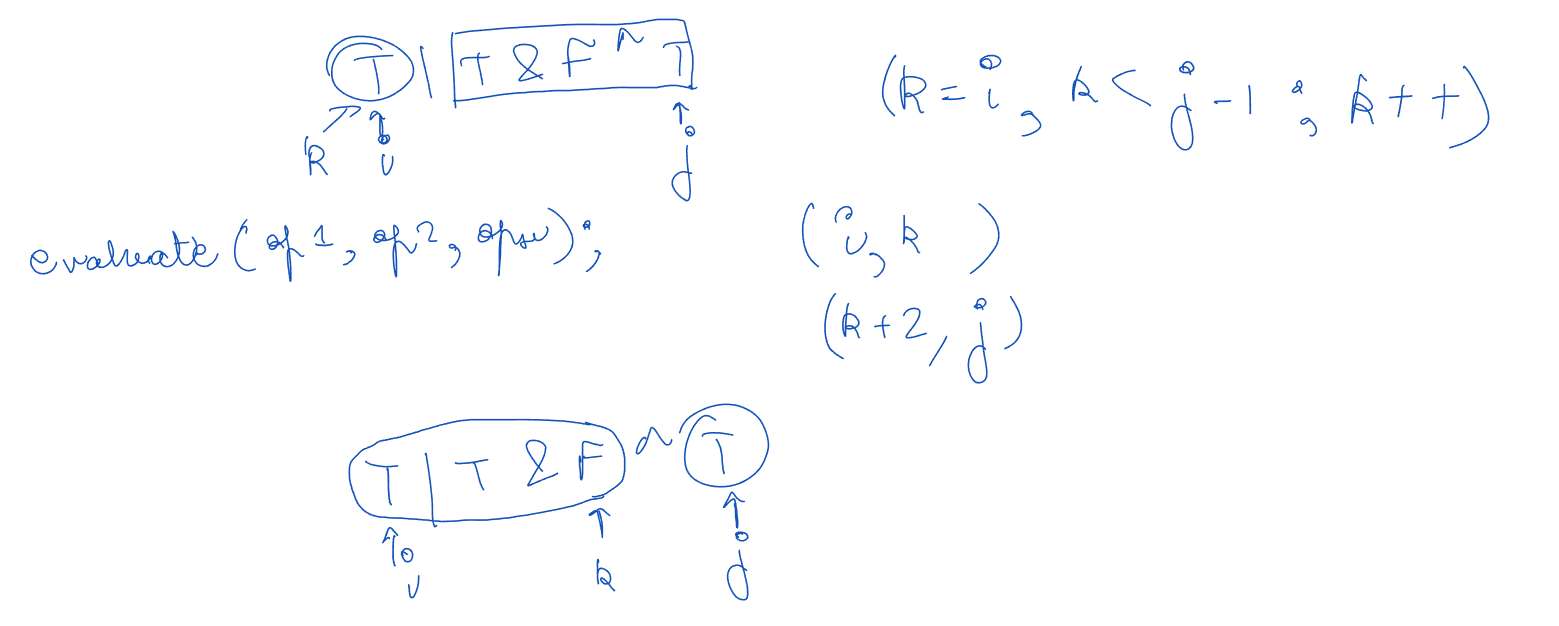 T | T & F ^ T
(k = i, k < j - 1 ; k + +)
k i j
evaluate (op1, op2, opr);
(i, k )
(k + 2, j)
T | T & F ^ T
i k j